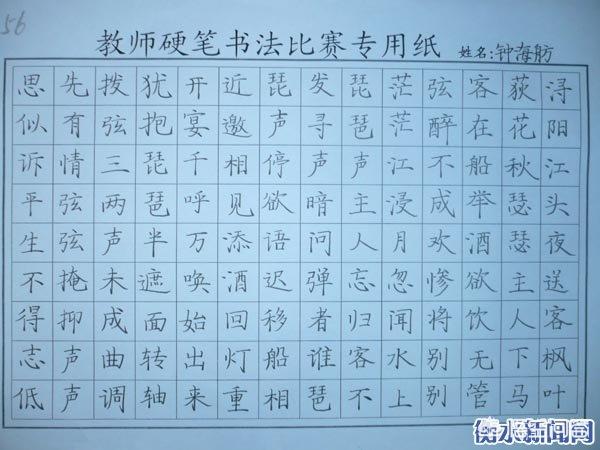 56
教师硬笔书法比赛专用纸
姓名:钟海舫
浔阳江头夜送客枫叶
荻花秋瑟瑟主人下马
客在船举酒欲饮无管
弦醉不成欢惨将别别
茫茫江浸月忽闻水上
琵琶声主人忘归客不
发寻声暗问弹者谁琶
琵声停欲语迟移船相
近邀相见添酒回灯重
开宴千呼万唤始出来
犹抱琵琶半遮面转轴
拨弦三两声未成曲调
先有情弦弦掩抑声声
思似诉平生不得志低
衡水新闻网